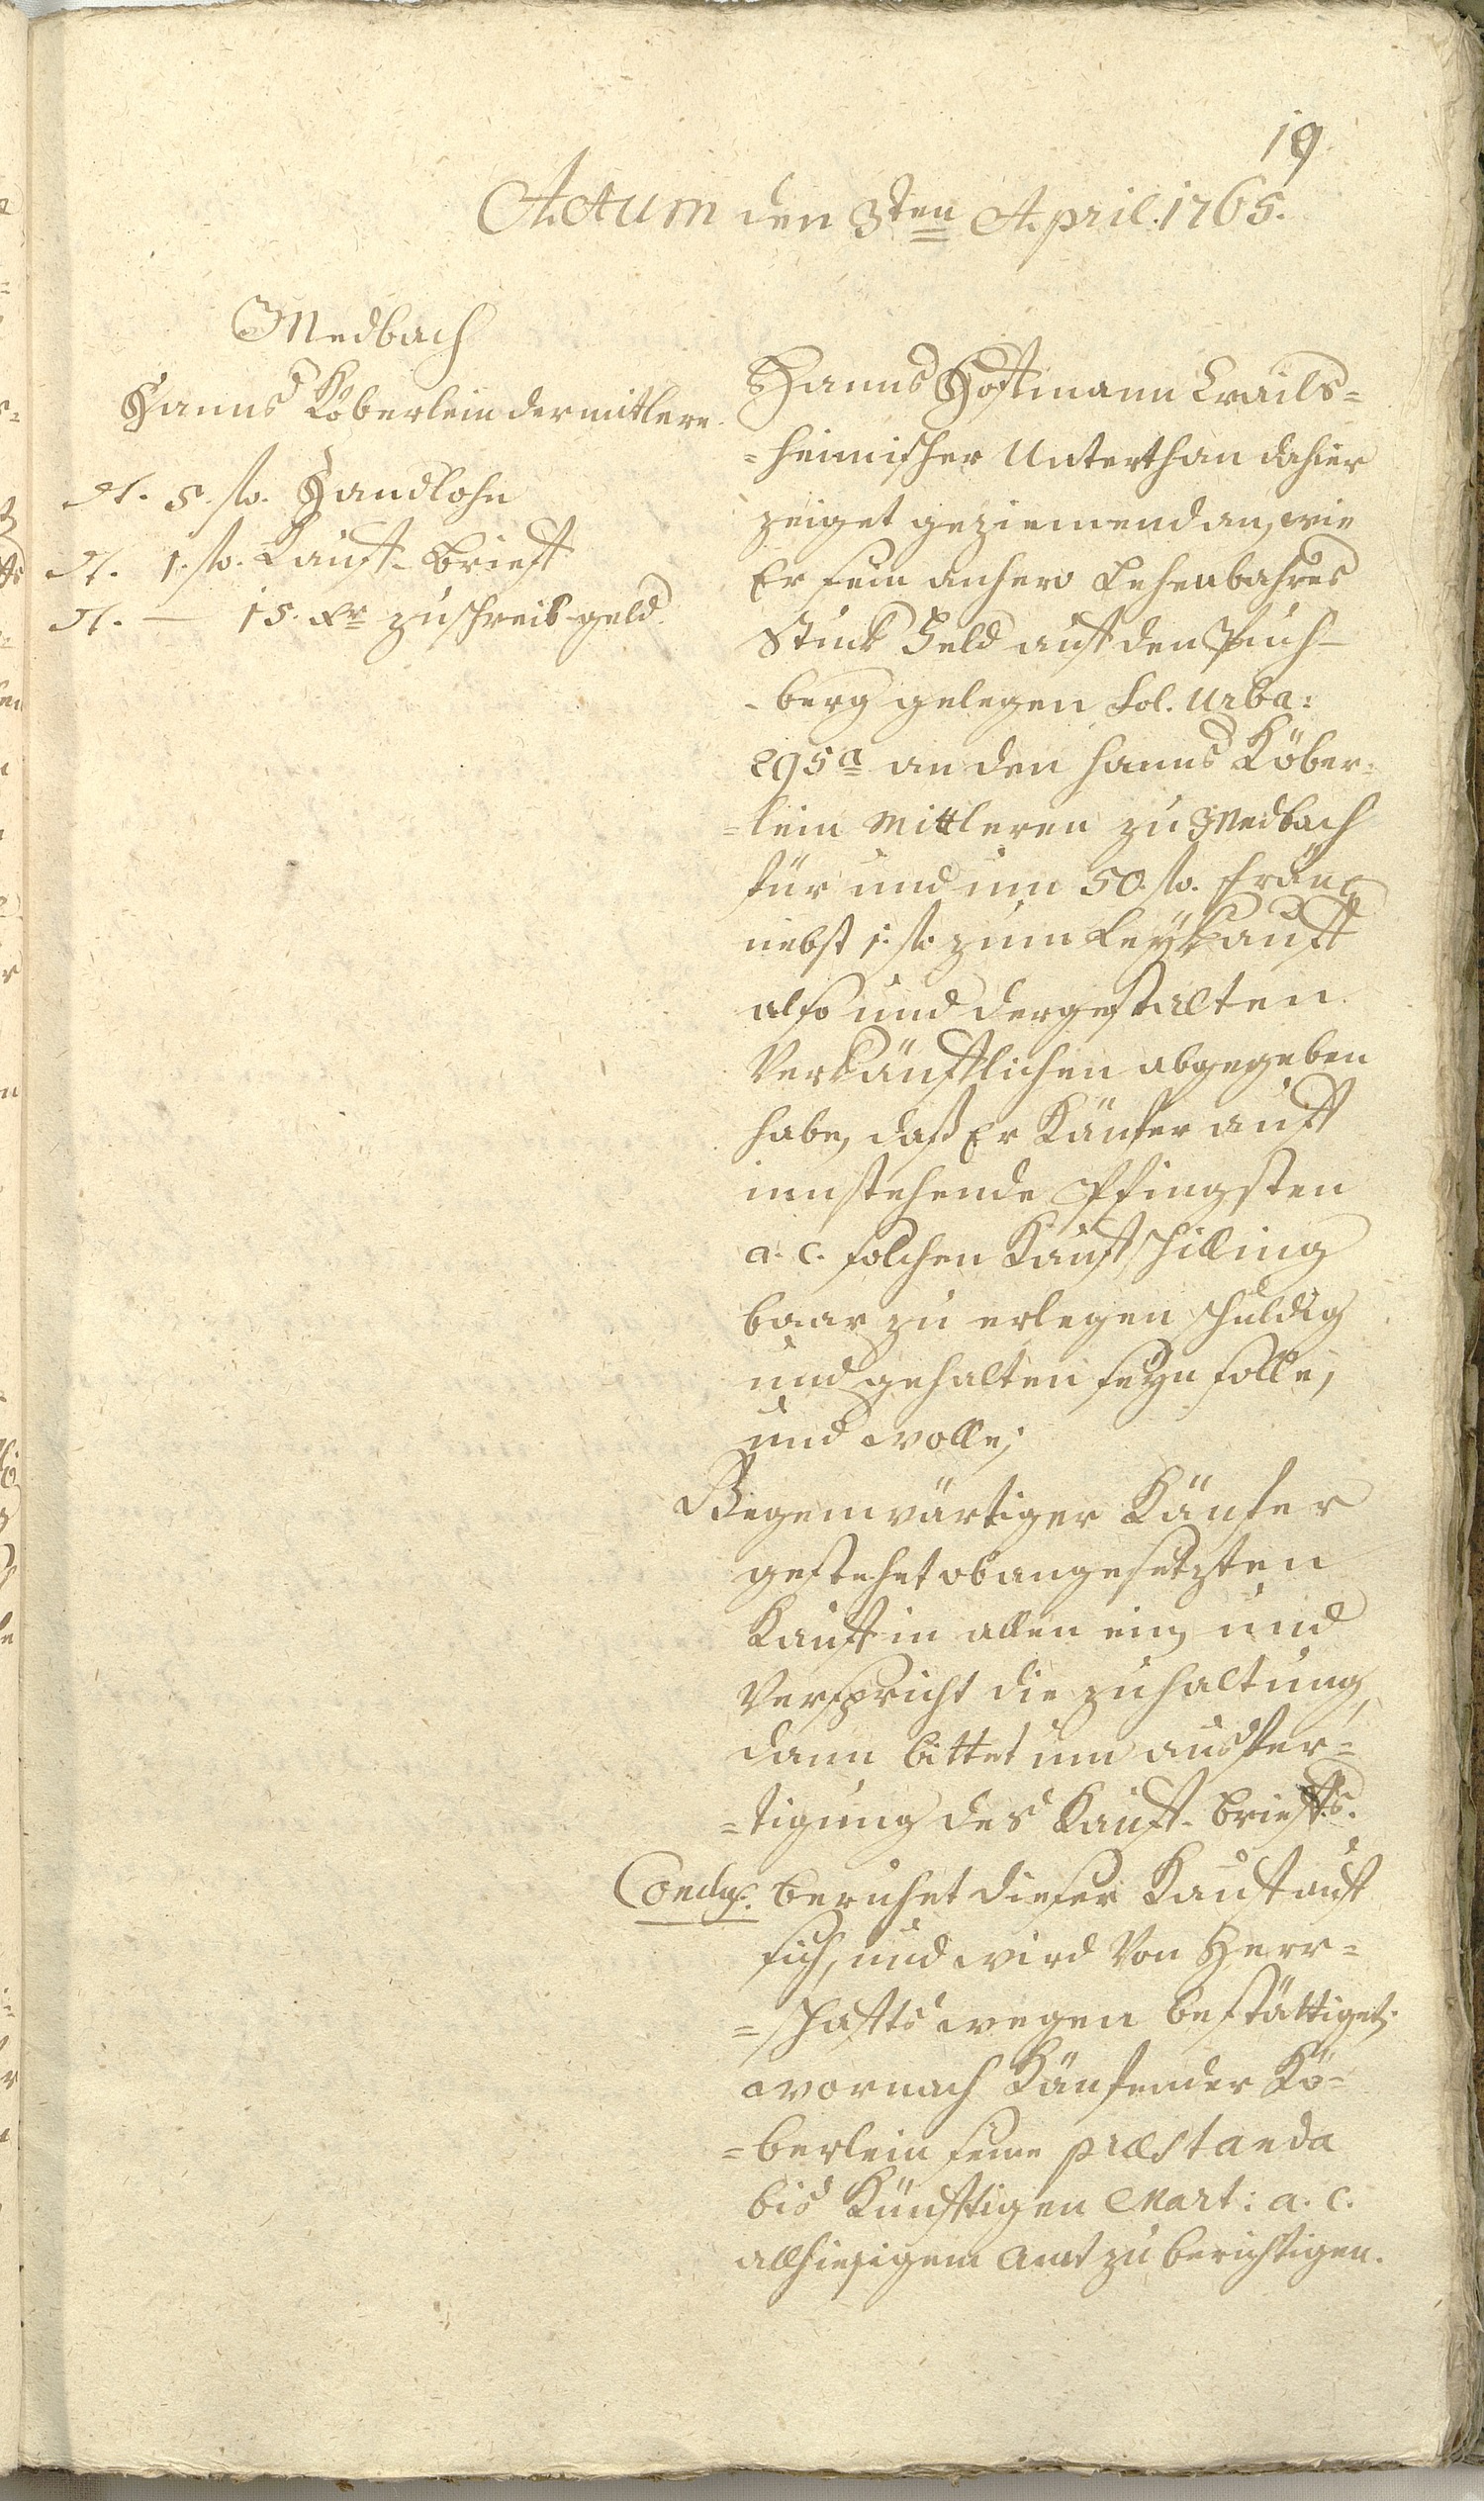 19
Actum den 3ten April. 1765.
Medbach
Hanns Köberlein der mitlere.
dt. 5. fl. Handlohn
dt. 1. fl. Kauff-brieff
dt. — 15. xr zuschreib-geld.
Hanns Hoffmann Crails=
=heimischer Unterthan dahier
zeiget geziemend an, wie
Er sein anhero Lehenbahres
Stuck Feld auf den Puch-
-berg gelegen fol. Urba:
295a an den Hanns Köber=
=lein Mittleren zu Medbach
für und um 50. fl. fränc
nebst 1. fl. zum Leykauff
also und dergestalten
Verkäufflichen abgegeben
habe, daß Er Käufer auff
innstehende Pfingsten
a. c. solchen Kauffschilling
baar zu erlegen schuldig
und gehalten seyn solle,
und wolle;
Gegenwärtiger Käufer
gestehet obangesetzten
Kauff in allen ein, und
Verspricht die zuhaltung,
dann bittet um ausfer=
=tigung des Kauff-brieffs.
beruhet dieser Kauff auf
sich, und wird Von Herr=
=schaffts wegen bestättiget;
wornach Käufender Kö=
=berlein seine præstanda
bis Künfftigen Mart: a. c.
allhiesigem Amt zu berichtigen.